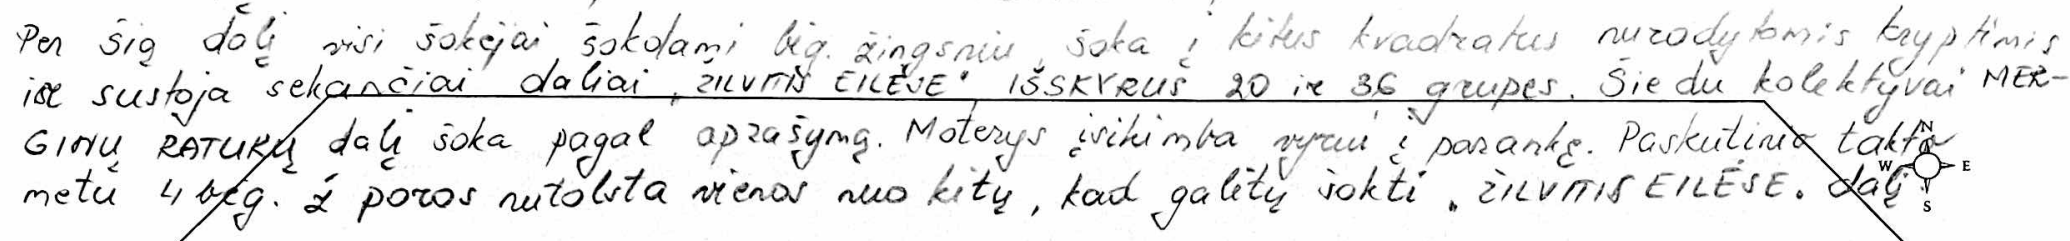 Per šią dalį visi šokėjai šokdami bėg. žingsniu, šoka į kitus kvadratus nurodytomis kryptimis
ir sustoja sekančiai daliai „ŽILVITIS EILĖSE" IŠSKYRUS 20 ir 36 grupes. Šie du kolektyvai MER-
GINŲ RATUKŲ dalį šoka pagal aprašymą. Moterys įsikimba vyrui į parankę. Paskutinio takto
metu 4 bėg. ž poros nutolsta vienos nuo kitų, kad galėtų šokti „ŽILVITIS EILĖSE" dalį.
N
W E
S